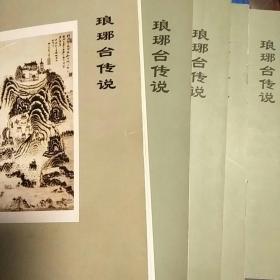 琅琊台传说
琅琊台传说
琅琊台传说
琅琊台传说